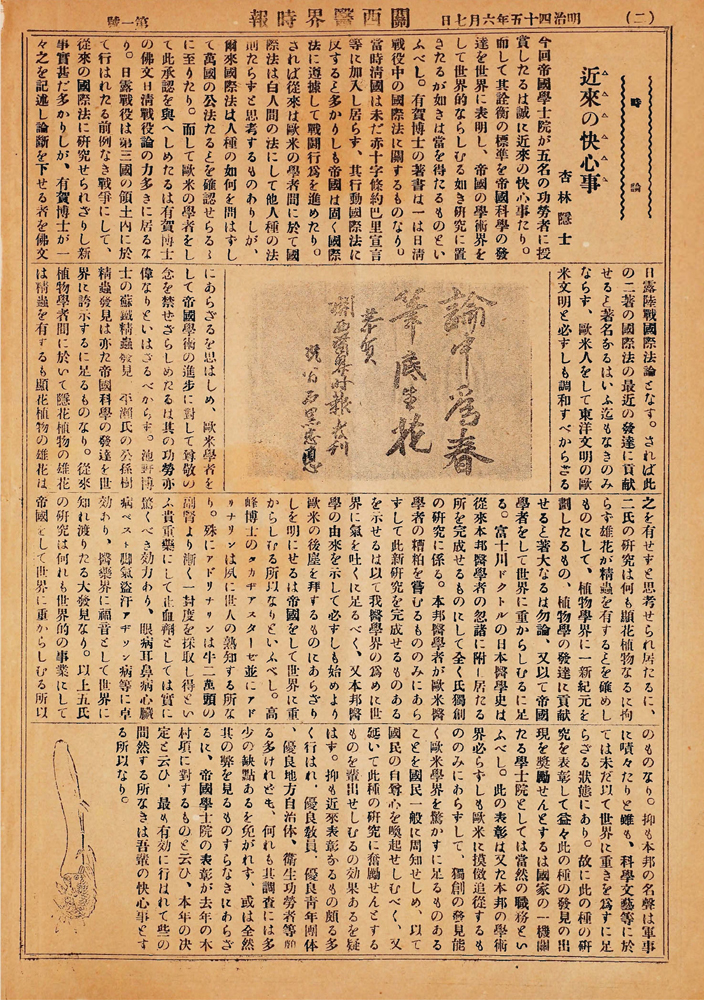 （二）
明治四十五年六月七日
關西醫界時報
第一號
時論
近來の快心事
杏林隱士
今回帝國學士院が五名の功勞者に授
賞したるは誠に近來の快心事たり。
而して其詮衡の標準を帝國科學の發
達を世界に表明し、帝國の學術界を
して世界的ならしむる如き研究に置
きたるが如きは當を得たるものとい
ふべし。有賀博士の著書は一は日淸
戰役中の國際法に關するものなり。
當時淸國は未だ赤十字條約巴里宣言
等に加入し居らず、其行動國際法に
反すると多かりしも帝國は固く國際
法に遵據して戰鬪行爲を進めたり。
されば從來は歐米の學者間に於て國
際法は白人間の法にして他人種の法
則たらずと思考するものありしが、
爾來國際法は人種の如何を問はずし
て萬國の公法たるとを確認せらるゝ
に至りたり。而して歐米の學者をし
て此承認を與へしめたるは有賀博士
の佛文日淸戰役論の力多きに居るな
り。日露戰役は第三國の領土內に於
て行はれたる前例なき戰爭にして、
從來の國際法に硏究せられざりし新
事實甚だ多かりしが、有賀博士が一
々之を記述し論斷を下せる者を佛文
日露陸戰國際法論となす。されば此
の二著の國際法の最近の發達に貢獻
せると著名なるはいふ迄もなきのみ
ならず、歐米人をして東洋文明の歐
米文明と必ずしも調和すべからざる
論中爲春
筆底生花
恭賀
關西醫界時報發刊
況翁石黑忠悳
にあらざるを思はしめ、歐米學者を
して帝國學術の進步に對して尊敬の
念を禁せざらしめたるは其の功勞亦
偉なりといはざるべからず。池野博
士の蘇鐵精蟲發見 平瀨氏の公孫樹
精蟲發見は亦た帝國科學の發達を世
界に誇示するに足るものなり。從來
植物學者間に於いて隱花植物の雄花
は精蟲を有するも顯花植物の雄花は
之を有せずと思考せられ居たるに、
二氏の硏究は何も顯花植物なるに拘
らず雄花が精蟲を有するとを確めし
ものにして、植物學界に一新紀元を
劃したるもの、植物學の發達に貢獻
せると著大なるは勿論、又以て帝國
學者をして世界に重からしむるに足
る。富士川ドクトルの日本醫學史は
從來本邦醫學者の忽諸に附し居たる
所を完成せるものにして全く氏獨創
の硏究に係る。本邦醫學者が歐米醫
學者の糟粕を嘗むるもののみにあら
ずして此新硏究を完成せるものある
を示せるは以て我醫學界の爲めに世
界に氣を吐くに足るべく、又本邦醫
學の由來を示して必ずしも始めより
歐米の後塵を拜するものにあらざり
しを明にせるは帝國をして世界に重
からしむる所以なりといふべし。高
峰博士のタカヂアスターゼ並にアド
リナリンは夙に世人の熟知する所な
り。殊にアドリナリンは牛二萬頭の
副腎より漸く一封度を採取し得とい
ふ貴重藥にして止血劑としては實に
驚くべき効力あり、眼病耳鼻病心臟
病ペスト脚氣盜汗アヂソン病等に卓
効あり、醫藥界に福音として世界に
知れ渡りたる大發見なり。以上五氏
の硏究は何れも世界的の事業にして
帝國をして世界に重からしむる所以
のものなり。抑も本邦の名聲は軍事
に嘖々たりと雖も、科學文藝等に於
ては未だ以て世界に重きを爲すに足
らざる狀態にあり。故に此の種の硏
究を表彰して益々此の種の發見の出
現を奬勵せんとするは國家の一機關
たる學士院としては當然の職務とい
ふべし。此の表彰は又た本邦の學術
界必らずしも歐米に摸倣追從するも
ののみにあらずして、獨創の發見能
く歐米學界を驚かすに足るものある
ことを國民一般に周知せしめ、以て
國民の自尊心を喚起せしむべく、又
延いて此種の硏究に奮勵せんとする
ものを輩出せしむるの効果あるを疑
はず。抑も近來表彰なるもの頗る多
く行はれ、優良敎員、優良靑年團体
、優良地方自治体、衛生功勞者等頗
る多けれども、何れも其調査には多
少の缺點あるを免がれず、或は全然
其の弊を見るものすらなきにあらざ
るに、帝國學士院の表彰が去年の木
村項に對するものと云ひ、本年の決
定と云ひ、最も有効に行はれて些の
間然する所なきは吾輩の快心事とす
る所以なり。